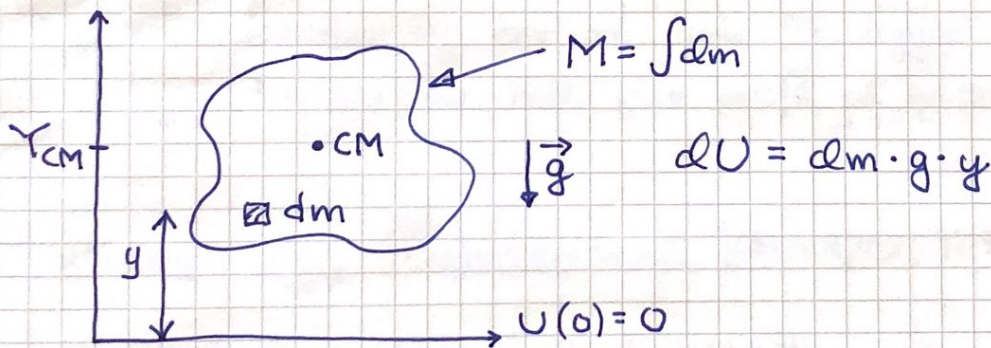 M = ∫dm
Y_CM
•CM
g⃗
dU = dm·g·y
dm
y
U(0) = 0